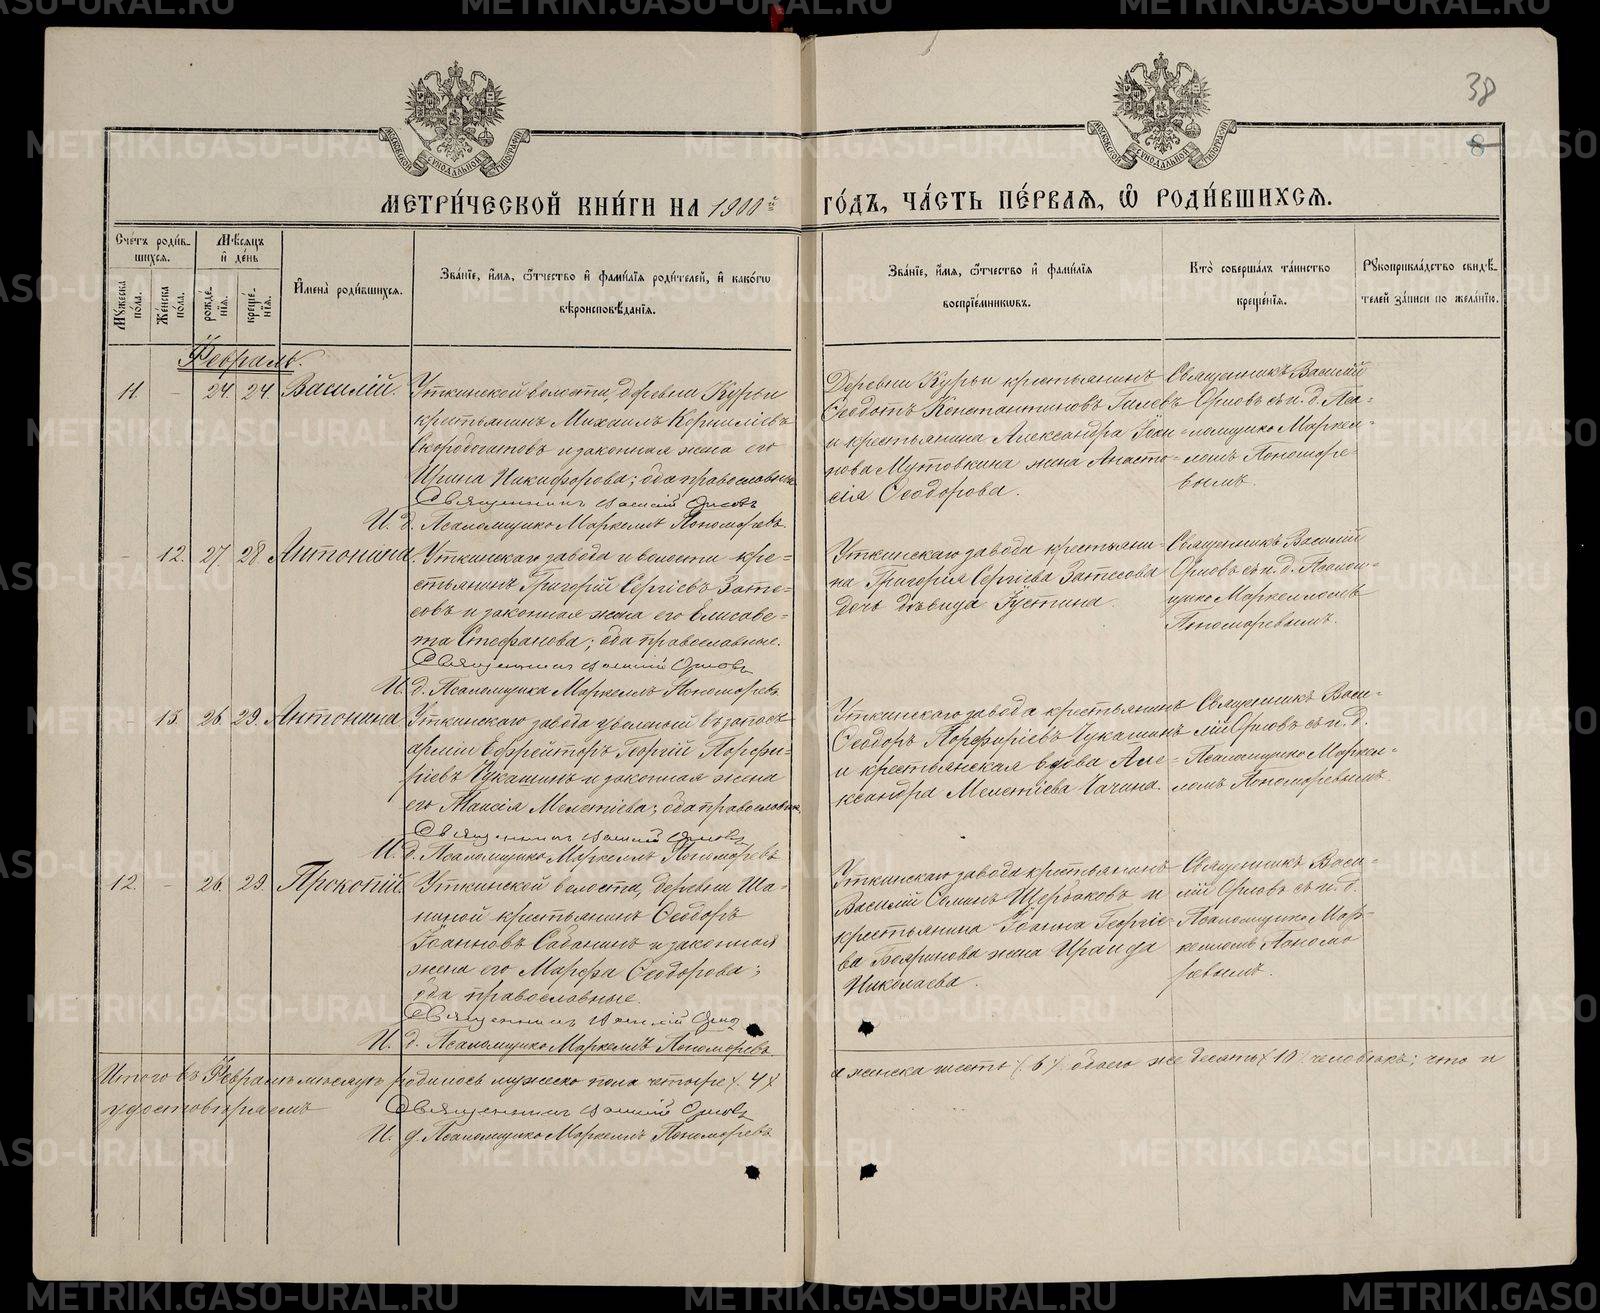 38
8
МОСКОВСКОЙ СѴНОДАЛЬНОЙ ТИПОГРАФІИ
МОСКОВСКОЙ СѴНОДАЛЬНОЙ ТИПОГРАФІИ
МЕТРИ́ЧЕСКОЙ КНИ́ГИ НА 1900й ГО́ДЪ, ЧА́СТЬ ПЕ́РВАѦ, Ѽ РОДИ́ВШИХСѦ.
Сче́тъ роди́в-
шихсѧ.
Мѣ́сѧцъ
и҆ де́нь
Мꙋ́жеска по́ла.
Же́нска по́ла.
рожде́нїѧ.
креще́нїѧ.
И҆мена̀ роди́вшихсѧ.
Зва́нїе, и҆́мѧ, ѻ҆́тчество и҆ фами́лїѧ роди́телей, и҆ како́гѡ
вѣроисповѣ́данїѧ.
Зва́нїе, и҆́мѧ, ѻ҆́тчество и҆ фами́лїѧ
воспрїе́мникѡвъ.
Кто̀ соверша́лъ та́инство
креще́нїѧ.
Рꙋкоприкла́дство свидѣ́-
телей за́писи по жела́нїю.
Февраль.
11. - 24. 24. Василій.
Уткинской волости, деревни Курьи
крестьянинъ Михаилъ Корниліевъ
Скоробогатовъ и законная жена его
Ирина Никифорова; оба православные.
Священникъ Василій Орловъ
И. д. Псаломщика Маркеллъ Пономаревъ.
Деревни Курьи крестьянинъ
Ѳеодотъ Константиновъ Гилевъ
и крестьянина Александра Іоки-
мова Мутовкина жена Анаста-
сія Ѳеодорова.
Священникъ Василій
Орловъ съ и. д. Пса-
ломщика Маркел-
ломъ Пономаре-
вымъ.
- 12. 27. 28. Антонина.
Уткинскаго завода и волости кре-
стьянинъ Григорій Сергіевъ Зате-
совъ и законная жена его Елисаве-
та Стефанова; оба православные.
Священникъ Василій Орловъ
И. д. Псаломщика Маркеллъ Пономаревъ
Уткинскаго завода крестьяни-
на Григорія Сергіева Затесова
дочь дѣвица Іустина.
Священникъ Василій
Орловъ съ и. д. Псалом-
щика Маркелломъ
Пономаревымъ.
- 13. 26. 29. Антонина
Уткинскаго завода уволеный въ запасъ
арміи Ефрейторъ Георгій Порфи-
ріевъ Чукашинъ и законная жена
его Таисія Мелетіева; оба православные.
Священникъ Василій Орловъ
И. д. Псаломщика Маркеллъ Пономаревъ
Уткинскаго завода крестьянинъ
Ѳеодоръ Порфиріевъ Чукашинъ
и крестьянская вдова Але-
ксандра Мелетіева Чачина.
Священникъ Васи-
лій Орловъ съ и. д.
Псаломщика Маркел-
ломъ Пономаревымъ.
12. - 26. 29. Прокопій.
Уткинской волости, деревни Ша-
ниной крестьянинъ Ѳеодоръ
Іоанновъ Сабанинъ и законная
жена его Марѳа Ѳеодорова;
оба православные.
Священникъ Василій Орловъ
И. д. Псаломщика Маркеллъ Пономаревъ.
Уткинскаго завода крестьянинъ
Василій Симинъ Щербаковъ и
крестьянина Іоанна Георгіе-
ва Бояринова жена Ираида
Николаева.
Священникъ Васи-
лій Орловъ съ и. д.
Псаломщика Мар-
келломъ Понома
ревымъ.
Итого въ Февралѣ мѣсяцѣ родилось мужеска пола четыре (4)
а женска шесть (6) обоего же десять (10) человѣкъ; что и
удостовѣряемъ
Священникъ Василій Орловъ
И. д. Псаломщика Маркеллъ Пономаревъ
METRIKI.GASO-URAL.RU